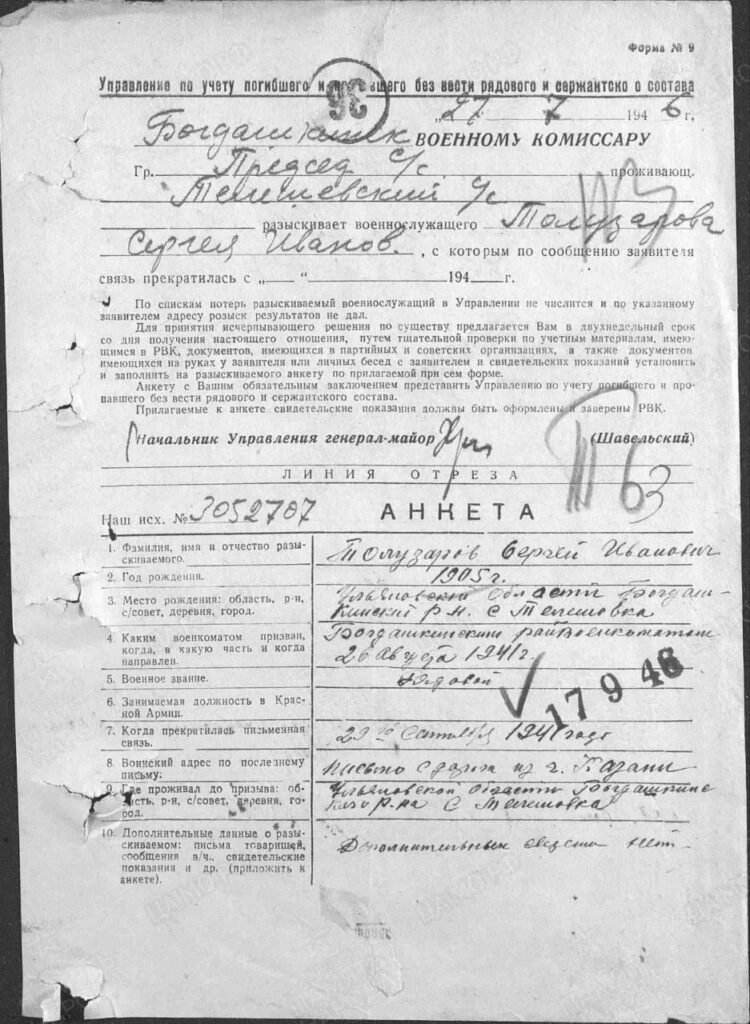 Форма № 9
Управление по учету погибшего и пропавшего без вести рядового и сержантского состава
36
„27“ 7 1946 г,
Богдашкинск ВОЕННОМУ КОМИССАРУ
Гр. Председ с/с проживающ.
Телешевский с/с
разыскивает военнослужащего Толузарова
Сергея Иванов. , с которым по сообщению заявителя
связь прекратилась с „ “ 194 г.
По спискам потерь разыскиваемый военнослужащий в Управлении не числится и по указанному
заявителем адресу розыск результатов не дал.
Для принятия исчерпывающего решения по существу предлагается Вам в двухнедельный срок
со дня получения настоящего отношения, путем тщательной проверки по учетным материалам, имею-
щимся в РВК, документов, имеющихся в партийных и советских организациях, а также документов
имеющихся на руках у заявителя или личных бесед с заявителем и свидетельских показаний установить
и заполнить на разыскиваемого анкету по прилагаемой при сем форме.
Анкету с Вашим обязательным заключением представить Управлению по учету погибшего и про-
павшего без вести рядового и сержантского состава.
Прилагаемые к анкете свидетельские показания должны быть оформлены и заверены РВК.
Начальник Управления генерал-майор (Шавельский)
ЛИНИЯ ОТРЕЗА
Т 63
Наш исх. № 3052707 АНКЕТА
1. Фамилия, имя и отчество разы-
скиваемого.
Толузаров Сергей Иванович
2. Год рождения.
1905г.
3. Место рождения: область, р-н,
с/совет, деревня, город.
Ульяновской области Богдаш-
кинский р.н. с Телешовка
4. Каким военкоматом призван,
когда, в какую часть и когда
направлен.
Богдашкинским райвоенкоматом
26 августа 1941г.
5. Военное звание.
Рядовой
17 9 46
6. Занимаемая должность в Крас-
ной Армии.
7. Когда прекратилась письменная
связь.
29го Сентября 1941 года
8. Воинский адрес по последнему
письму:
письмо с дороги из г. Казани
9. Где проживал до призыва: об-
ласть, р-н, с/совет, деревня, го-
род.
Ульяновской области Богдашкинс
кого р-на с Телешовка
10. Дополнительные данные о разы-
скиваемом: письма товарищей,
сообщения в/ч., свидетельские
показания и др. (приложить к
анкете).
Дополнительных сведений нет